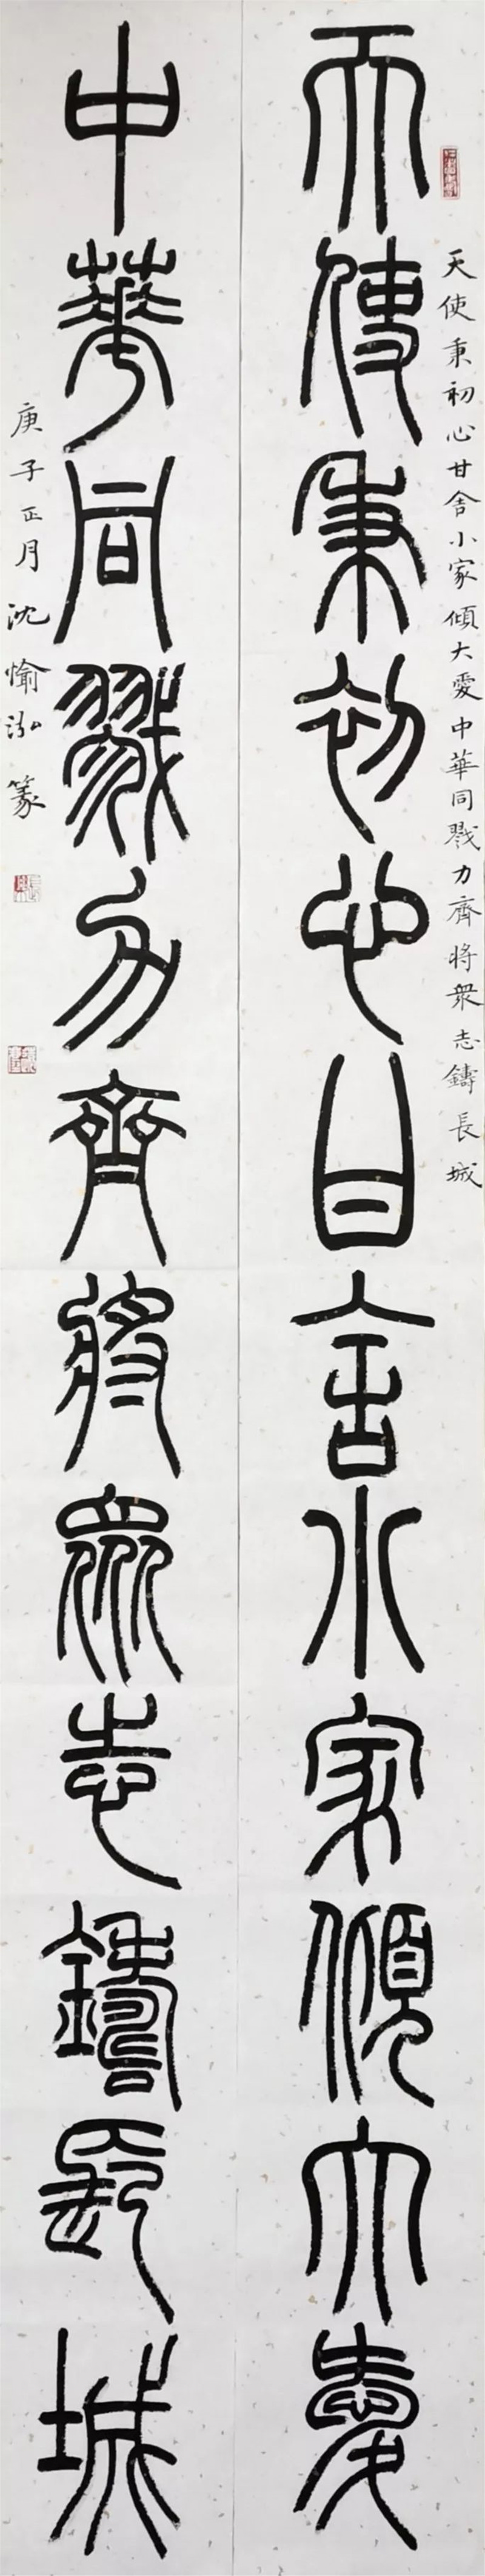 天使秉初心甘舍小家傾大愛中華同戮力齊將衆志鑄長城
天使秉初心甘舍小家傾大愛
中華同戮力齊將衆志鑄長城
庚子正月沈愉泓篆